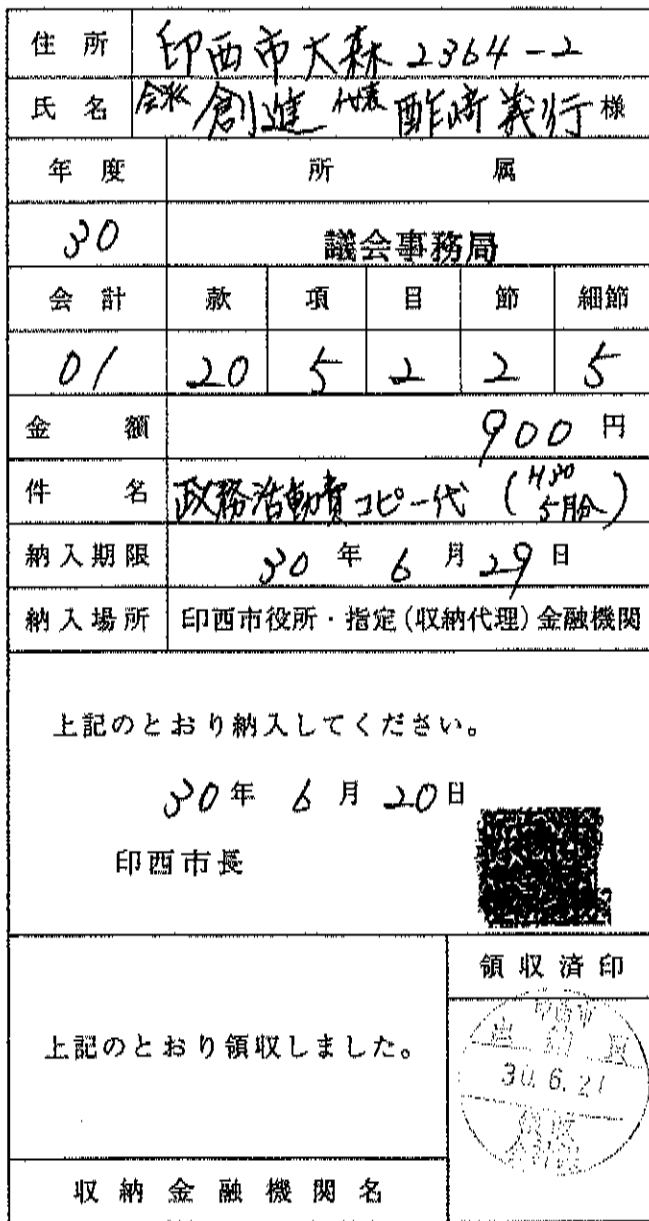 住所 印西市大森2364-2
氏名 会派 創進 代表 酢﨑義行 様
年度 所属
30 議会事務局
会計 款 項 目 節 細節
01 20 5 2 2 5
金額 900円
件名 政務活動費コピー代 (H30 5月分)
納入期限 30年6月29日
納入場所 印西市役所・指定(収納代理)金融機関
上記のとおり納入してください。
30年6月20日
印西市長
領収済印
上記のとおり領収しました。
印西市
出納員
30.6.21
領収
収納金融機関名